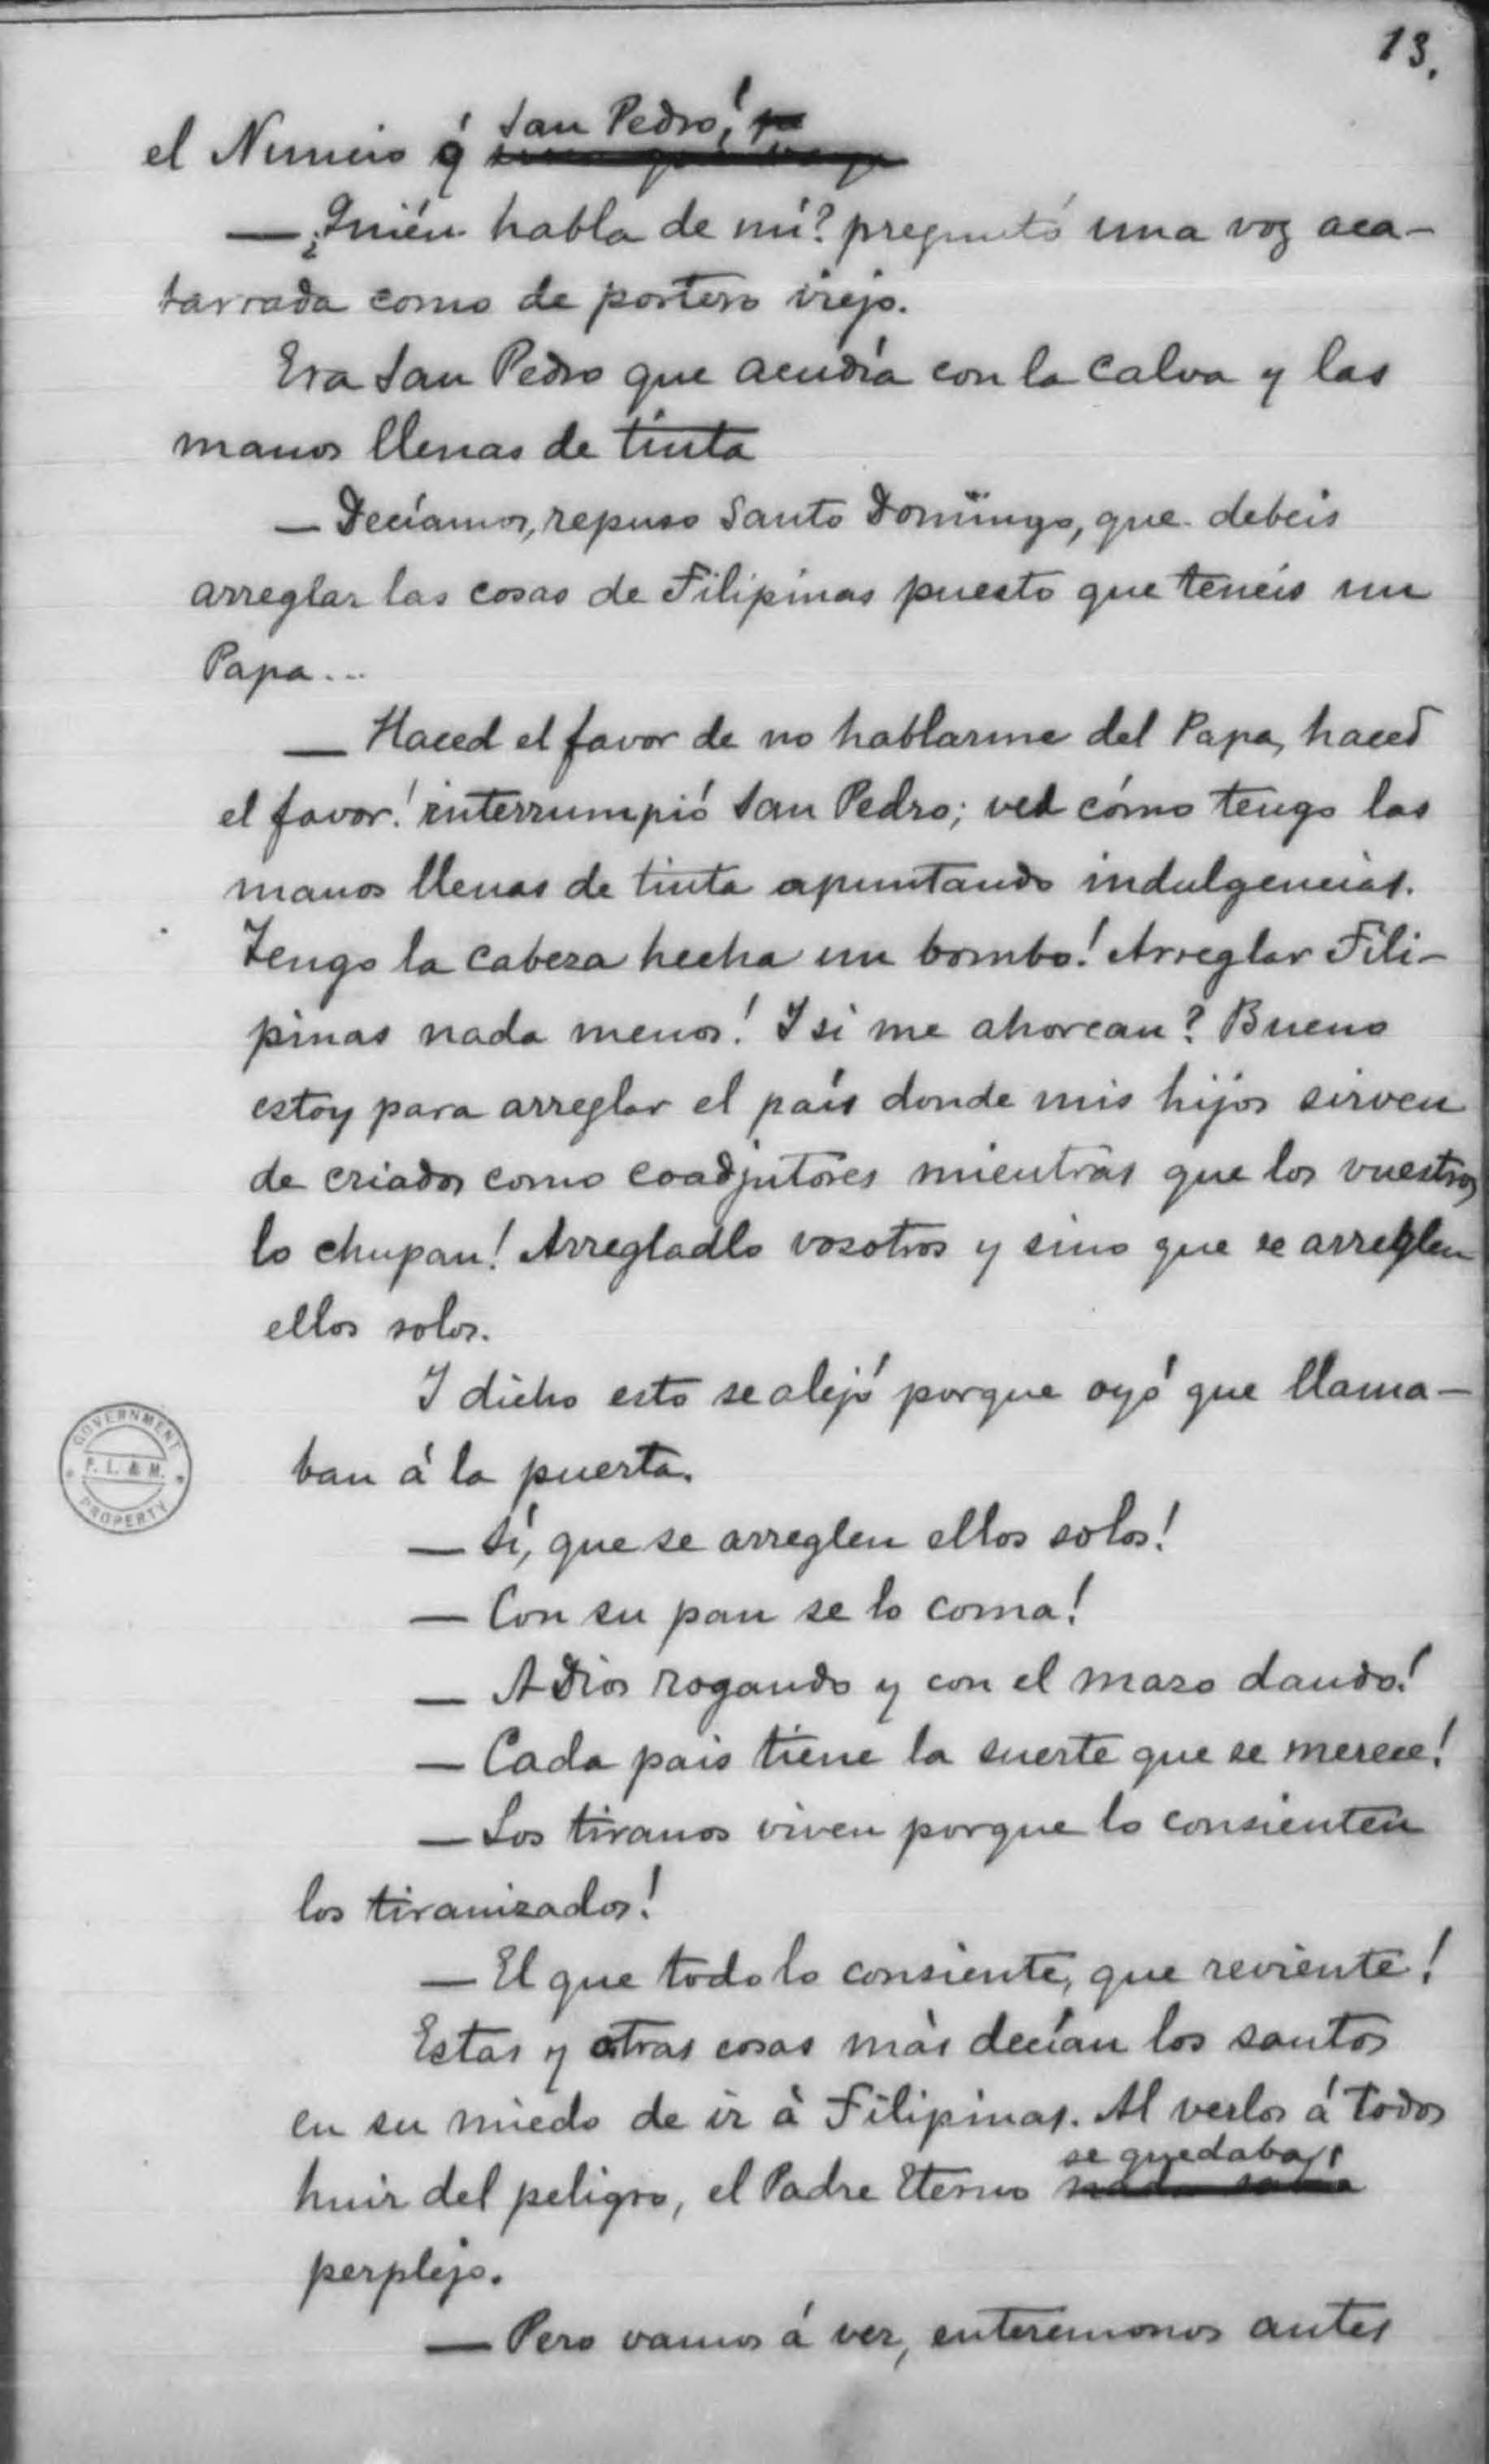 13.
el Nuncio ó San Pedro!
— ¿Quién habla de mí? preguntó una voz aca-
tarrada como de portero viejo.
Era San Pedro que acudía con la calva y las
manos llenas de tinta
— Decíamos, repuso Santo Domingo, que debeis
arreglar las cosas de Filipinas puesto que teneis un
Papa...
— Haced el favor de no hablarme del Papa, haced
el favor! interrumpió San Pedro; ved cómo tengo las
manos llenas de tinta apuntando indulgencias.
Tengo la cabeza hecha un bombo! Arreglar Fili-
pinas nada menos! Y si me ahorcan? Bueno
estoy para arreglar el país donde mis hijos sirven
de criados como coadjutores mientras que los vuestros
lo chupan! Arregladlo vosotros y sino que se arreglen
ellos solos.
Y dicho esto se alejó porque oyó que llama-
ban á la puerta.
— Sí, que se arreglen ellos solos!
— Con su pan se lo coma!
— A Dios rogando y con el mazo dando!
— Cada pais tiene la suerte que se merece!
— Los tiranos viven porque lo consienten
los tiranizados!
— El que todo lo consiente, que reviente!
Estas y otras cosas más decían los santos
en su miedo de ir á Filipinas. Al verlos á todos
huir del peligro, el Padre Eterno se quedaba
perplejo.
— Pero vamos á ver, enteremonos antes
GOVERNMENT
P. L. & M.
PROPERTY